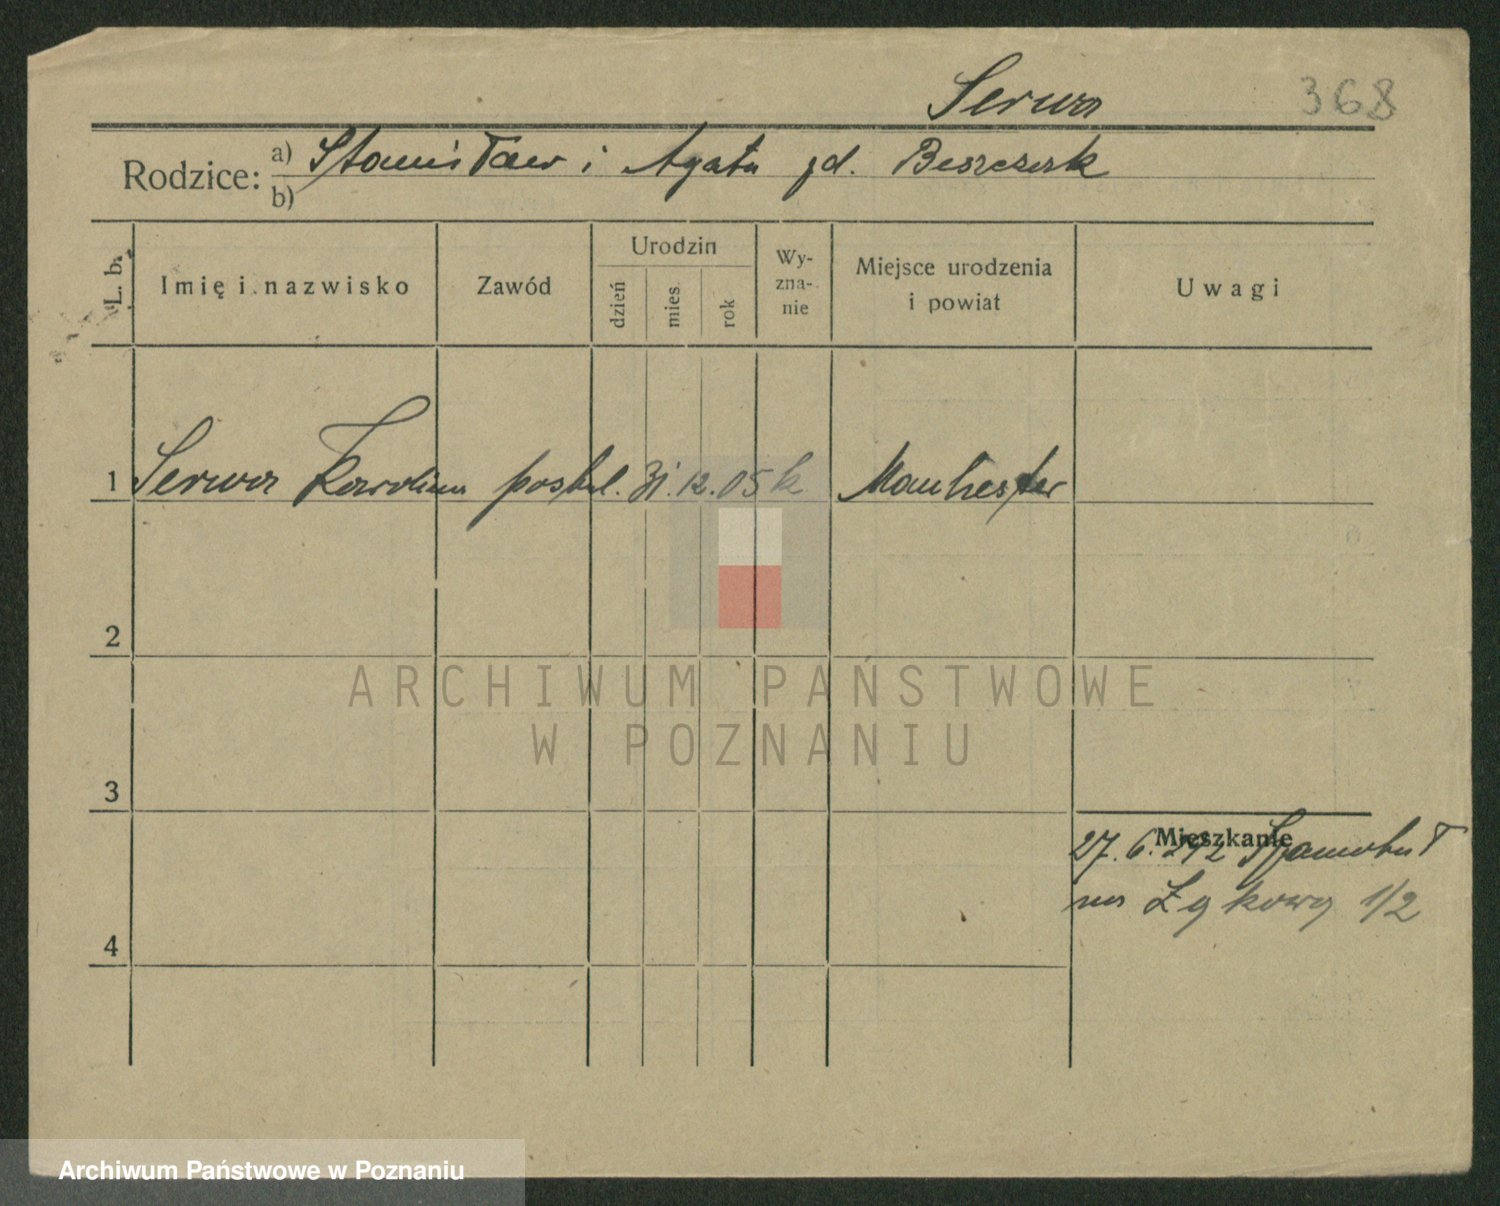 Serwa 368
Rodzice: a) Stanisław i Agata zd.
b)
L. b. Imię i nazwisko Zawód Urodzin dzień mies. rok Wy-zna-nie Miejsce urodzenia i powiat Uwagi
1 Serwa Karolina posług. 31. 12. 05 k Manchester
2
ARCHIWUM PAŃSTWOWE
W POZNANIU
3
Mieszkanie
27. 6. Szamotuł
na 1/2
4
Archiwum Państwowe w Poznaniu